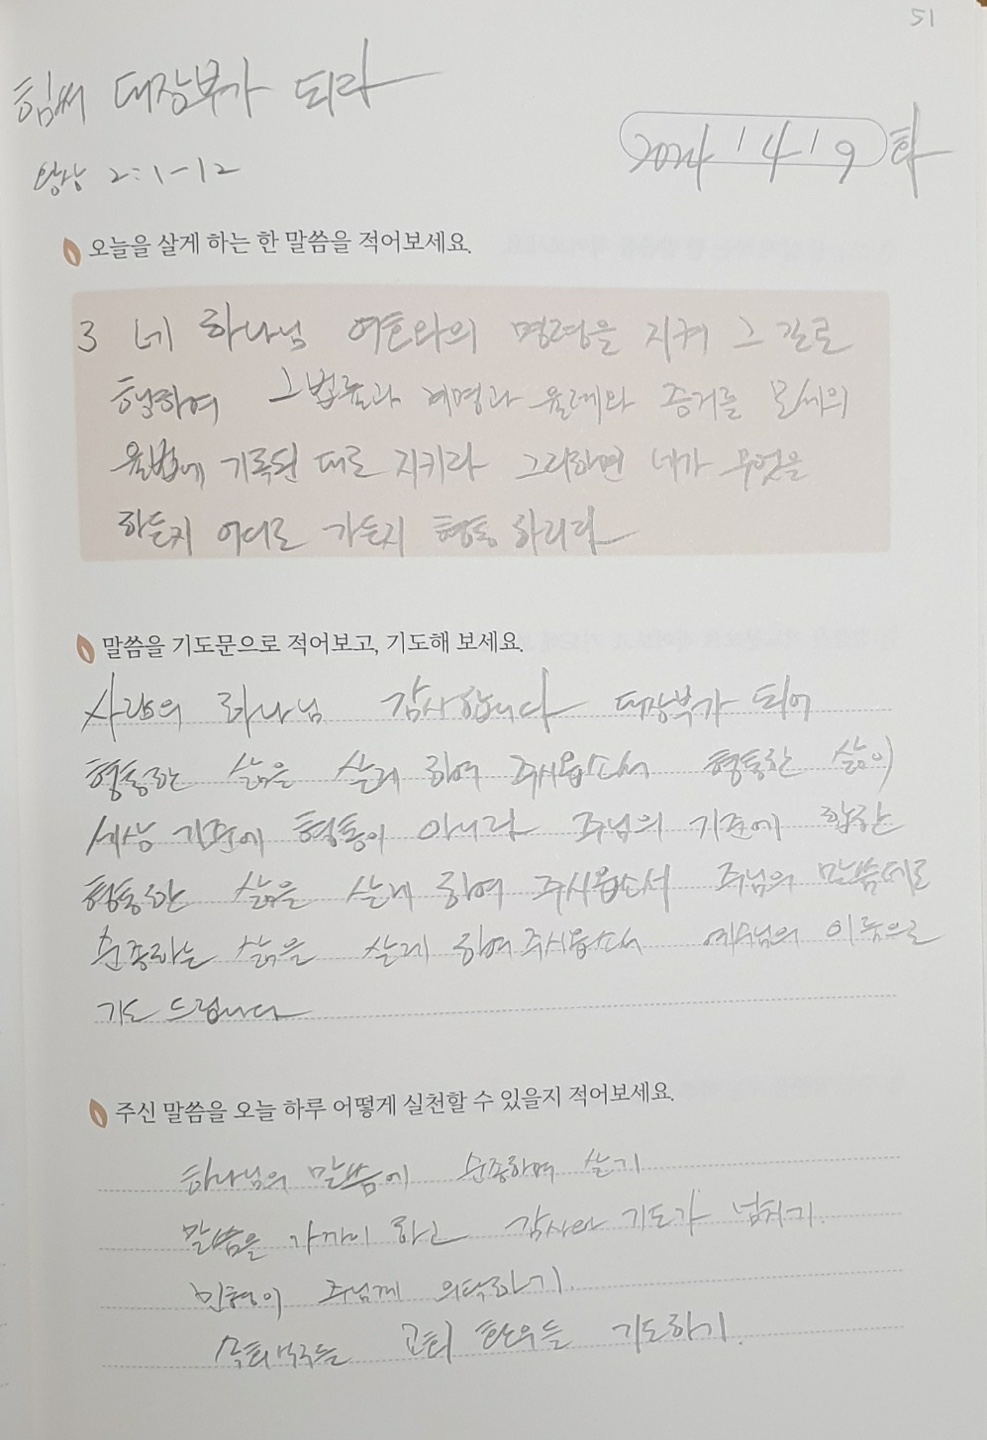 51
힘써 대장부가 되라
2024 / 4 / 9 화
왕상 2:1-12
오늘을 살게 하는 한 말씀을 적어보세요.
3 네 하나님 여호와의 명령을 지켜 그 길로
행하여 그 법률과 계명과 율례와 증거를 모세의
율법에 기록된 대로 지키라 그리하면 네가 무엇을
하든지 어디로 가든지 형통 하리라
말씀을 기도문으로 적어보고, 기도해 보세요.
사랑의 하나님 감사합니다 대장부가 되어
형통한 삶을 살게 하여 주시옵소서 형통한 삶이
세상 기준에 형통이 아니라 주님의 기준에 합한
형통한 삶을 살게 하여 주시옵소서 주님의 말씀대로
순종하는 삶을 살게 하여 주시옵소서 예수님의 이름으로
기도 드립니다
주신 말씀을 오늘 하루 어떻게 실천할 수 있을지 적어보세요.
하나님의 말씀에 순종하며 살기
말씀을 가까이 하고 감사와 기도가 넘치기.
민형이 주님께 의탁하기.
교회 환우들 기도하기.